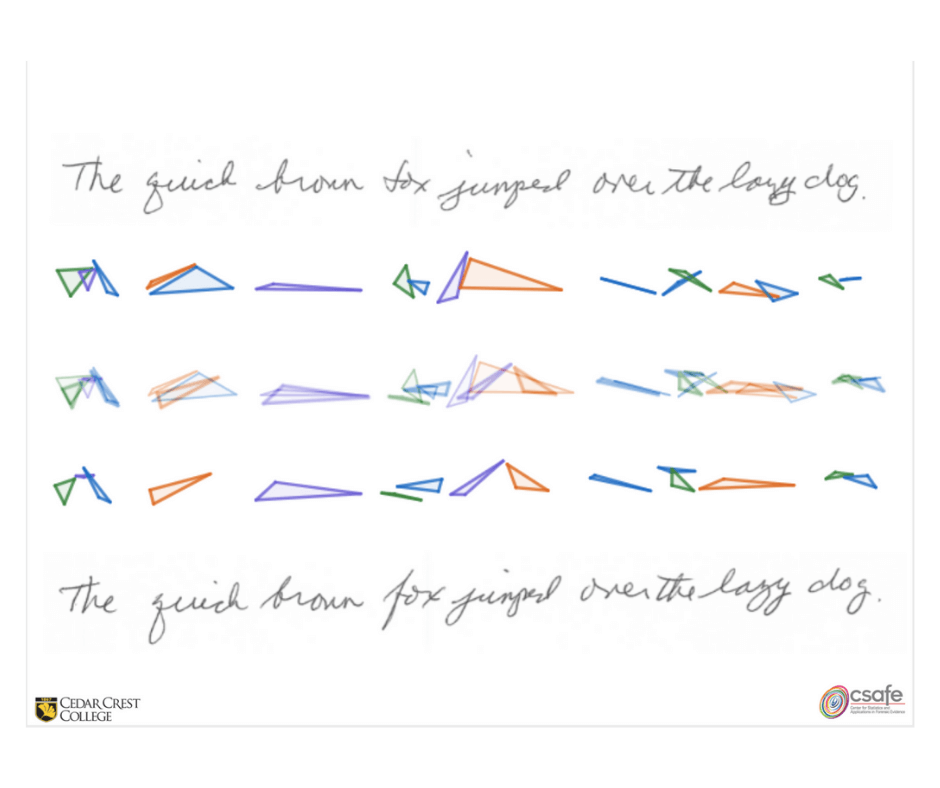 The quick brown fox jumped over the lazy dog.
The quick brown fox jumped over the lazy dog.
CEDAR CREST
COLLEGE
csafe
Center for Statistics and
Applications in Forensic Evidence